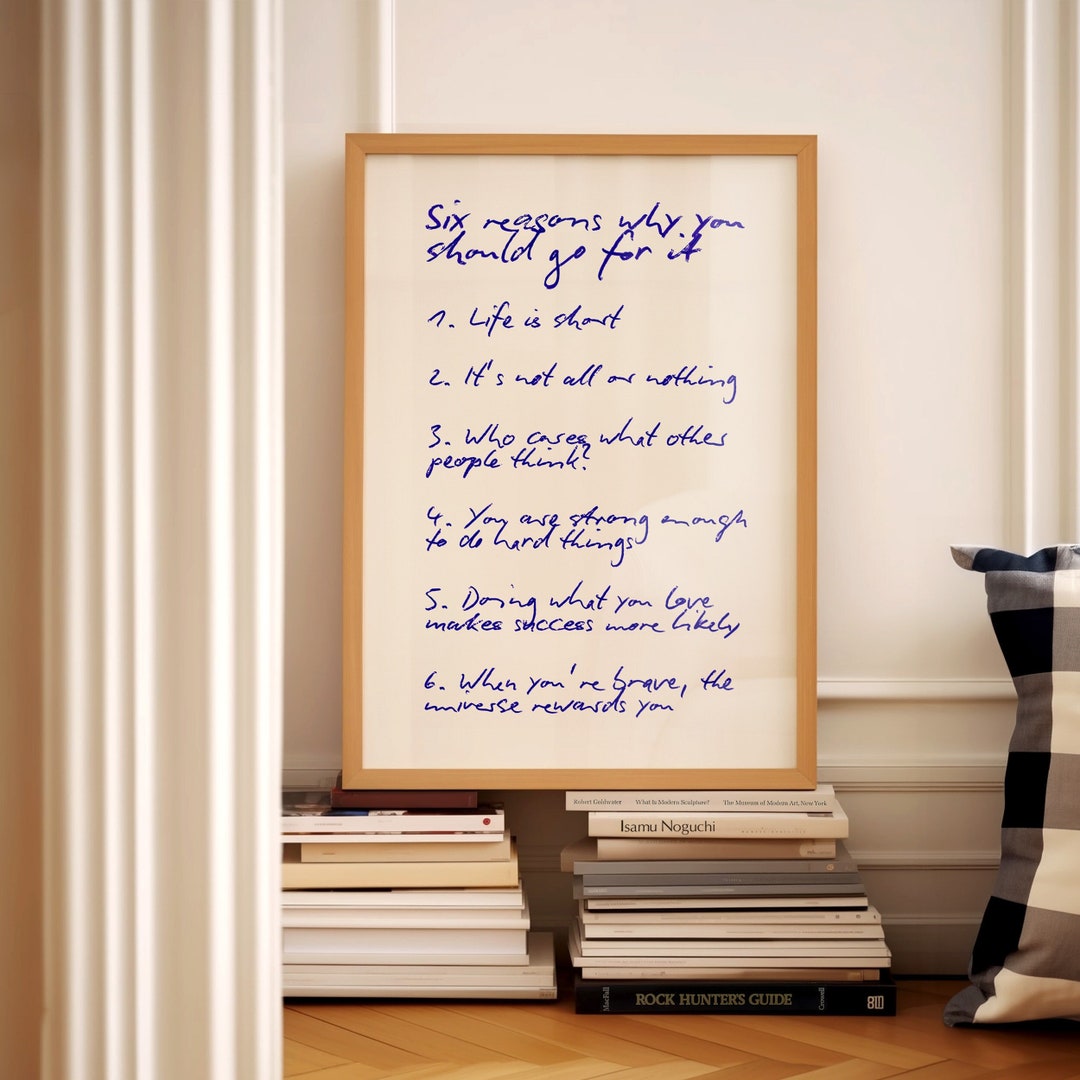 Six reasons why you
should go for it
1. Life is short
2. It's not all or nothing
3. Who cares what other
people think?
4. You are strong enough
to do hard things
5. Doing what you love
makes success more likely
6. When you're brave, the
universe rewards you
Robert Goldwater What Is Modern Sculpture? The Museum of Modern Art, New York
Isamu Noguchi
MacFall ROCK HUNTER'S GUIDE Crowell